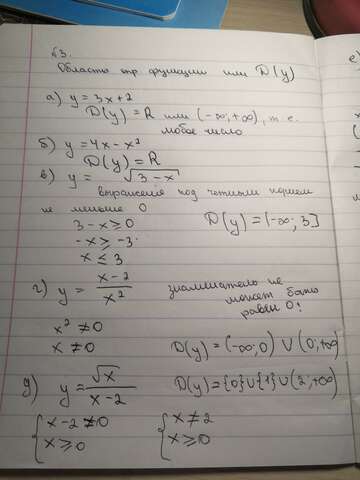 №3.
Область опр. функции или D(y)
а) y = 3x+2
D(y) = R или (-∞; +∞), т.е.
любое число
б) y = 4x - x²
D(y) = R
в) y = √(3-x)
выражение под четным корнем
не меньше 0
3 - x ≥ 0
-x ≥ -3
x ≤ 3
D(y) = (-∞; 3]
г) y = (x-2)/x²
знаменатель не
может быть
равен 0!
x² ≠ 0
x ≠ 0
D(y) = (-∞; 0) ∪ (0; +∞)
д) y = √x/(x-2)
D(y) = {0}∪{1}∪(2; +∞)
{ x-2 ≠ 0
x ≥ 0
{ x ≠ 2
x ≥ 0
е)